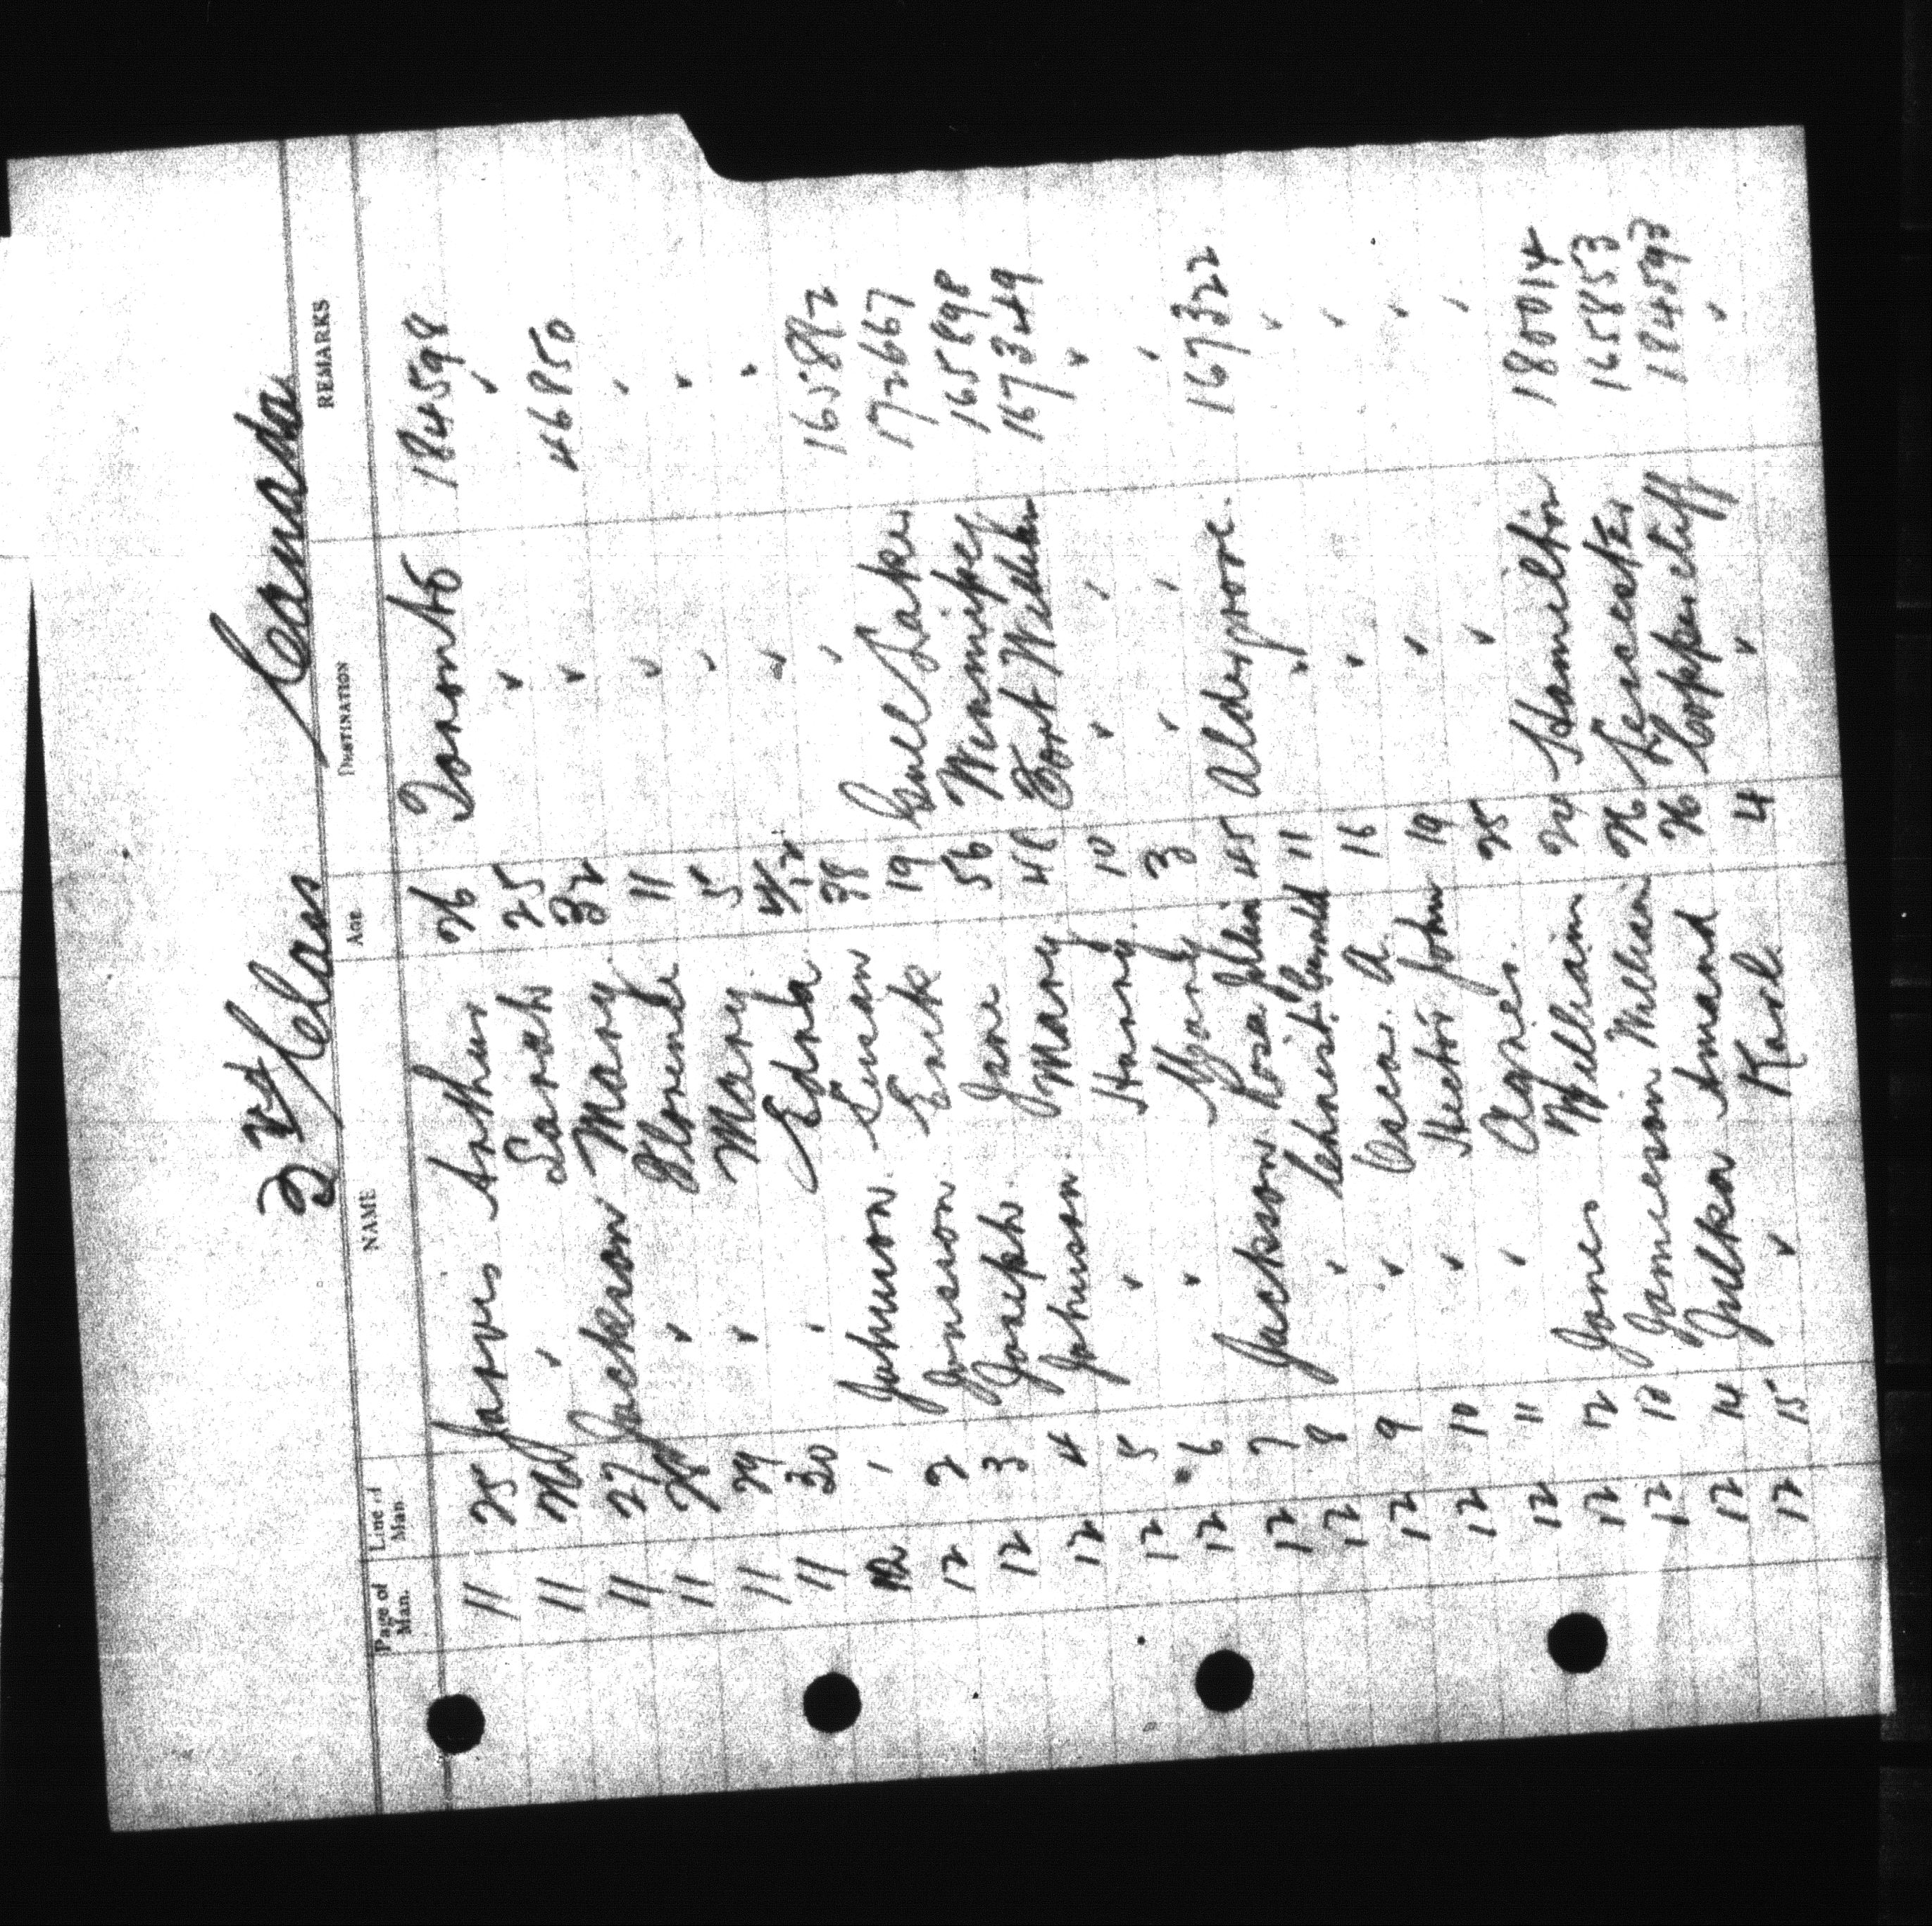 2nd Class Canada
Page of Man. Line of Man NAME AGE DESTINATION REMARKS
11 25 Jarvis Arthur 26 Toronto 184598
11 26 ✓ Sarah 25 ✓ ✓
11 27 Jackson Mary 32 ✓ 46850
11 28 ✓ Florence 11 ✓ ✓
11 29 ✓ Mary 5 ✓ ✓
11 30 ✓ Edna ✓ ✓
12 1 Johnson Susan 38 ✓ 165882
12 2 Jonsson Erik 19 Gull Lake 172667
12 3 Joseph Jane 56 Winnipeg 165898
12 4 Johnson Mary Fort William 167349
12 5 ✓ Hanny 10 ✓ ✓ ✓
12 6 ✓ 3 ✓ ✓ ✓
12 7 Jackson Rosa Ellen 45 Aldergrove. 167322
12 8 ✓ 11 ✓ ✓
12 9 ✓ Oscar. A. 16 ✓ ✓
12 10 ✓ Hector John 19 ✓ ✓
12 11 ✓ Agnes. 25 ✓ ✓
12 12 Jones William 24 Hamilton 180014
12 13 Jameson William 26 Leicester 165853
12 14 Julkea Amand 26 Coppercliff 184593
12 15 ✓ Karl 4 ✓ ✓